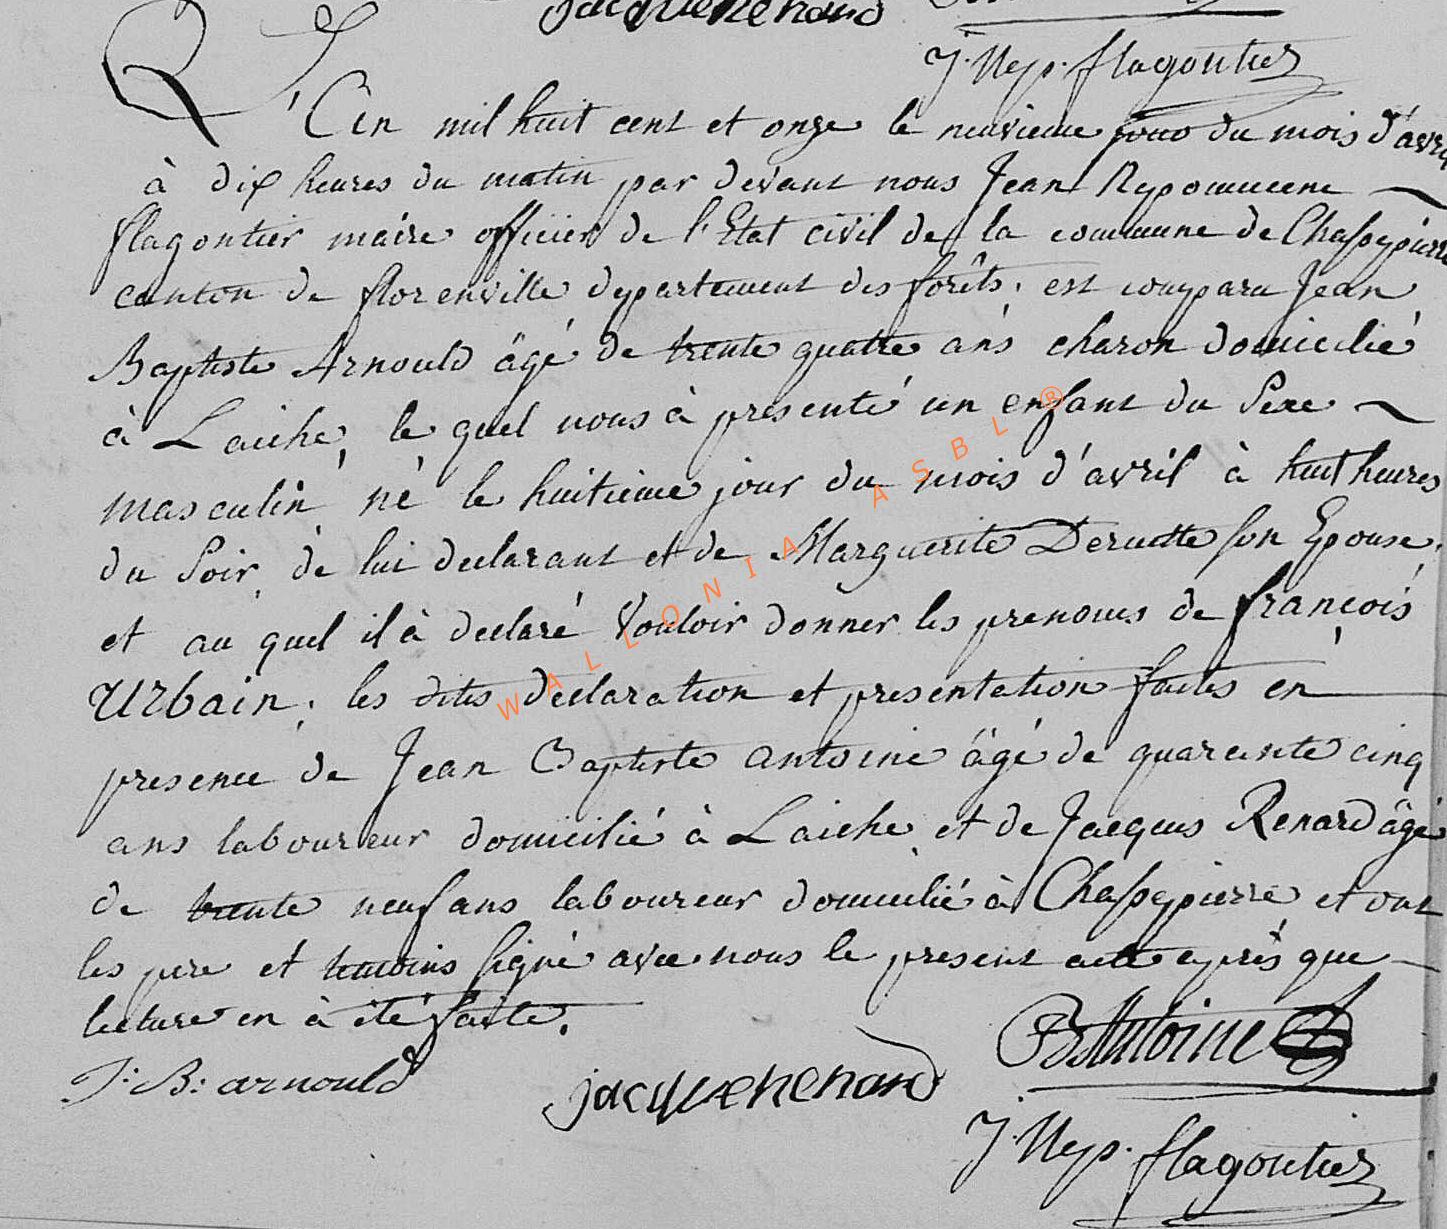 jacque renard
J. Nep. flagontier
L'an mil huit cent et onze le neuvieme jour du mois d'avril
à dix heures du matin par devant nous Jean Nepomucene
flagontier maire officier de l'Etat civil de la commune de Chassepierre
canton de florenville departement des forêts. est comparu Jean
Baptiste Arnould âgé de trente quatre ans charon domicilié
à Laiche, le quel nous à presenté un enfant du Sexe
masculin né le huitieme jour du mois d'avril à huit heures
du Soir, de lui declarant et de Marguerite Deruette son Epouse.
et au quel il à declaré Vouloir donner les prenoms de françois
Urbain. les dites declaration et presentation faites en
presence de Jean Baptiste antoine âgé de quarente cinq
ans laboureur domicilié à Laiche et de Jacques Renard âgé
de trente neuf ans laboureur domicilié à Chassepierre et ont
les pere et temoins signé avec nous le present acte après que
lecture en à été faite.
JB Antoine
J. B. arnould
jacque renard
J. Nep. flagontier
WALLONIA ASBL ®